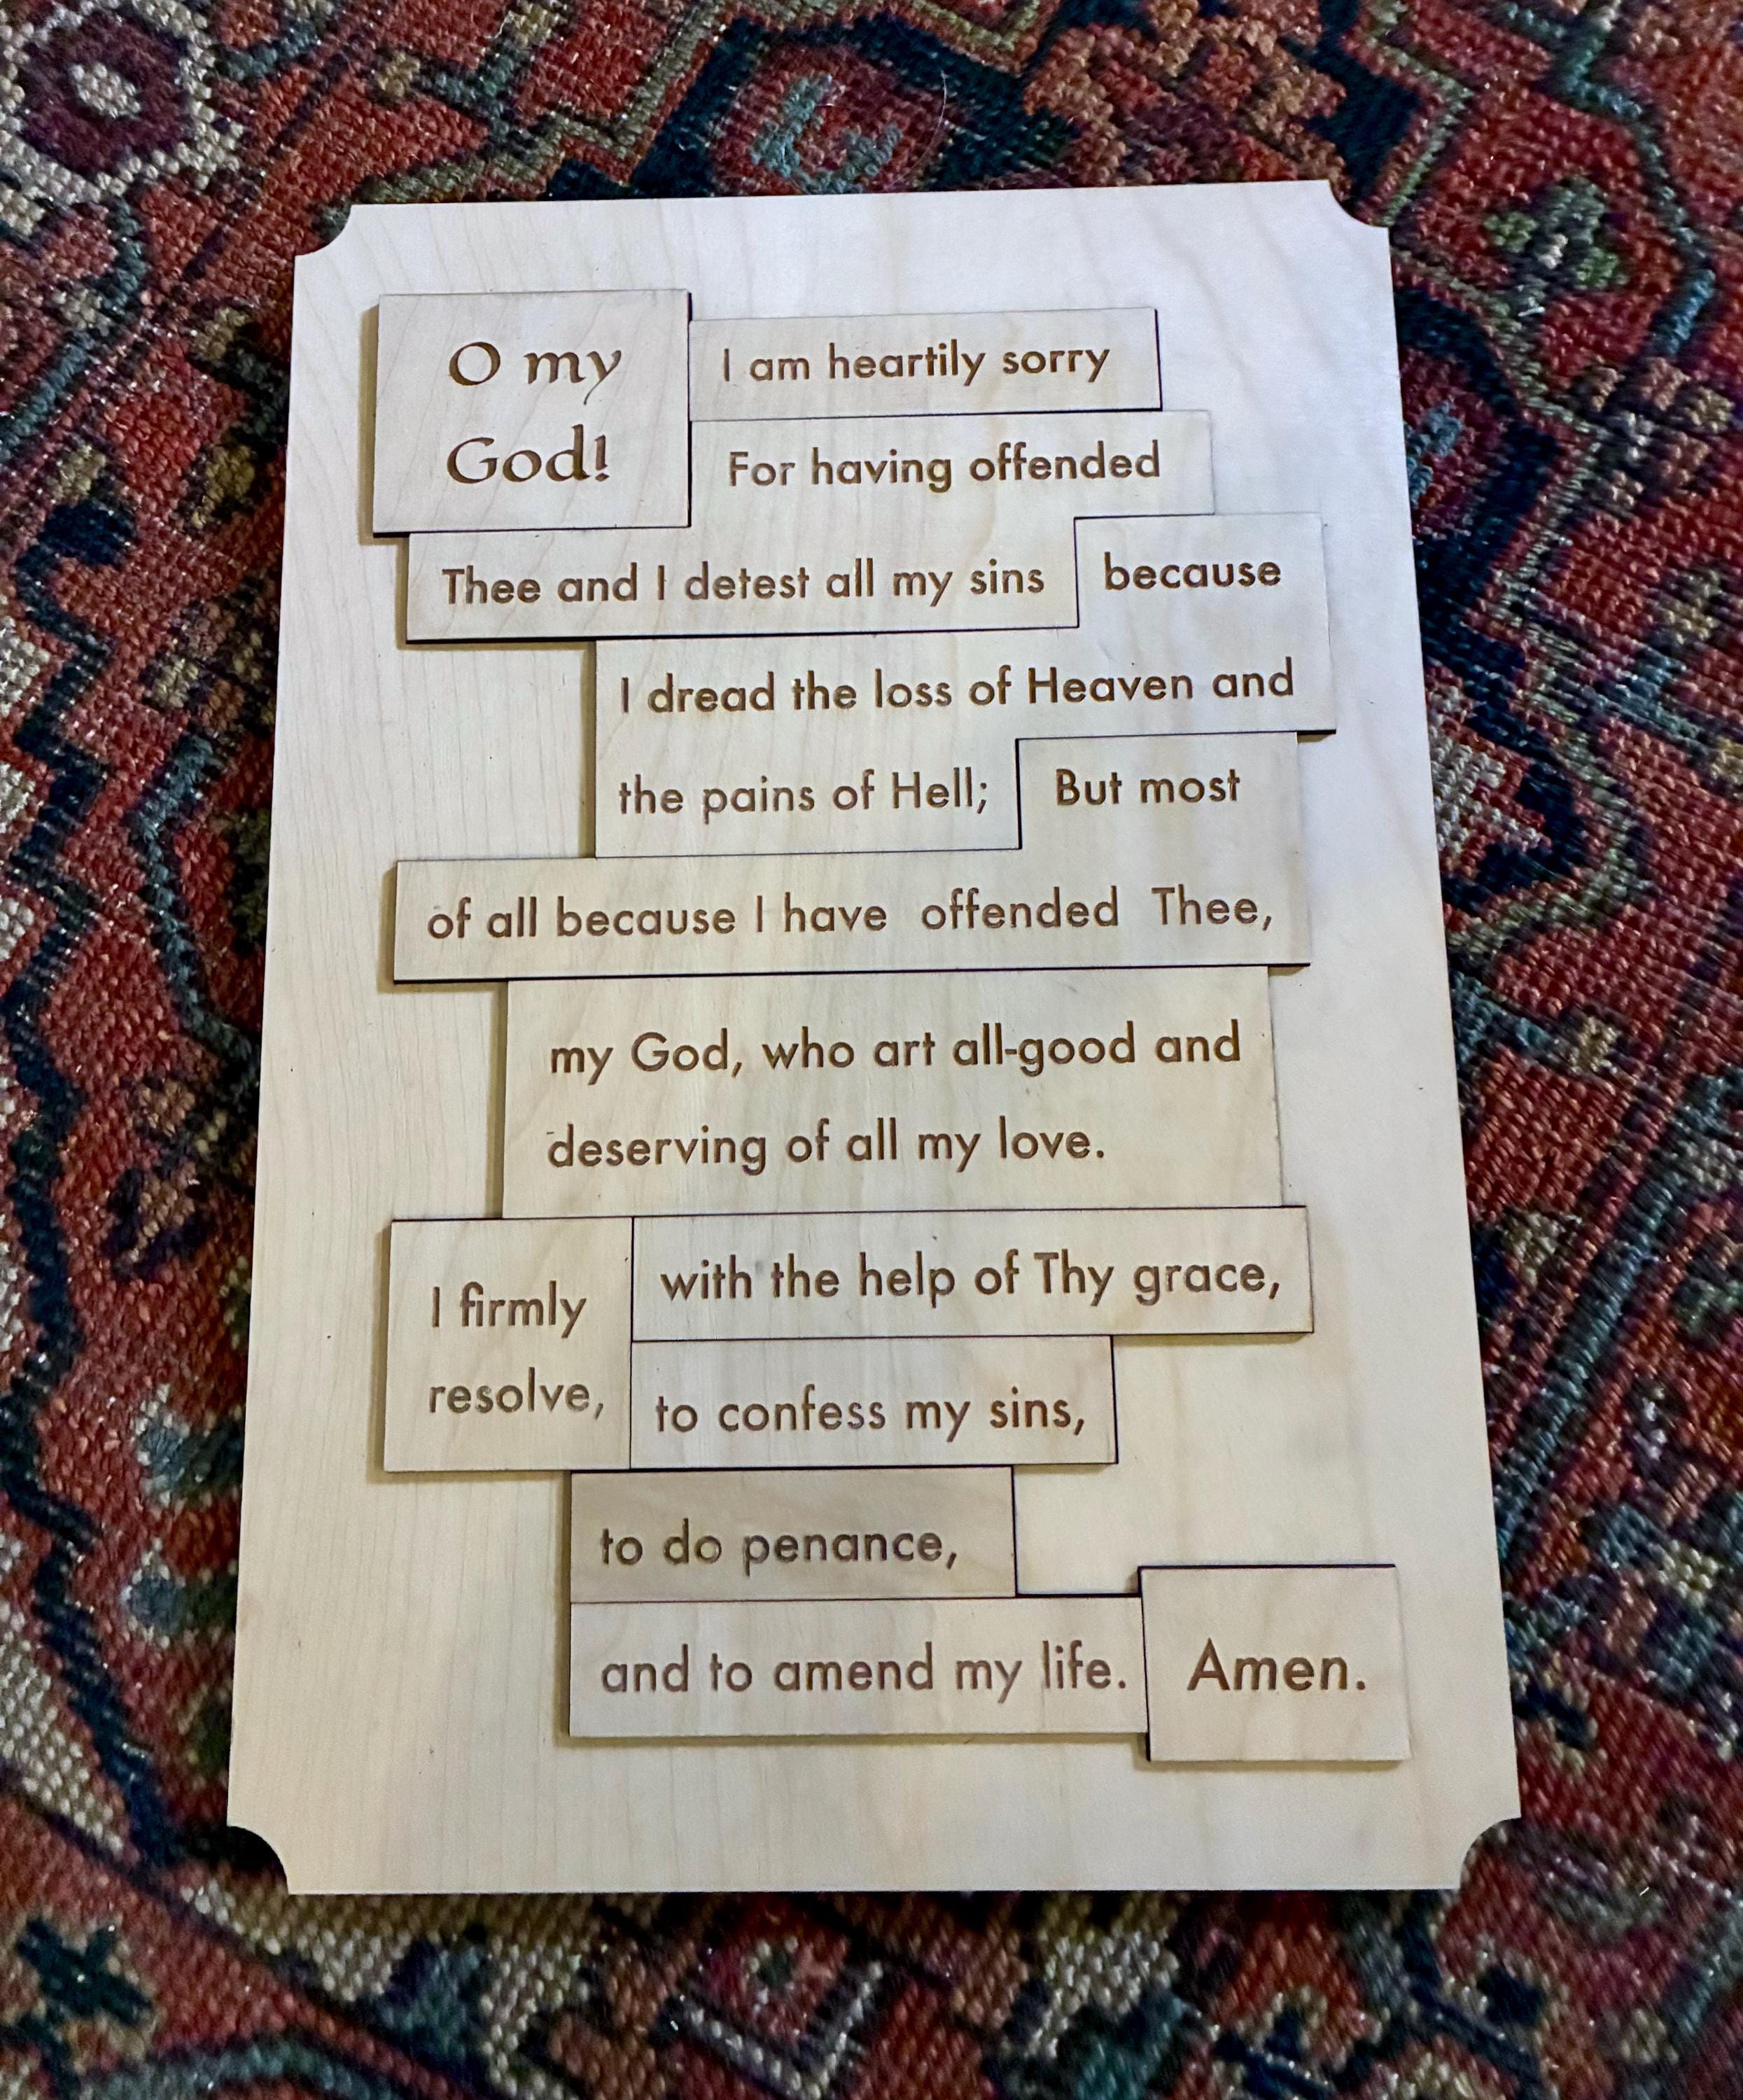 O my
God!
I am heartily sorry
For having offended
Thee and I detest all my sins
because
I dread the loss of Heaven and
the pains of Hell;
But most
of all because I have offended Thee,
my God, who art all-good and
deserving of all my love.
I firmly
resolve,
with the help of Thy grace,
to confess my sins,
to do penance,
and to amend my life.
Amen.